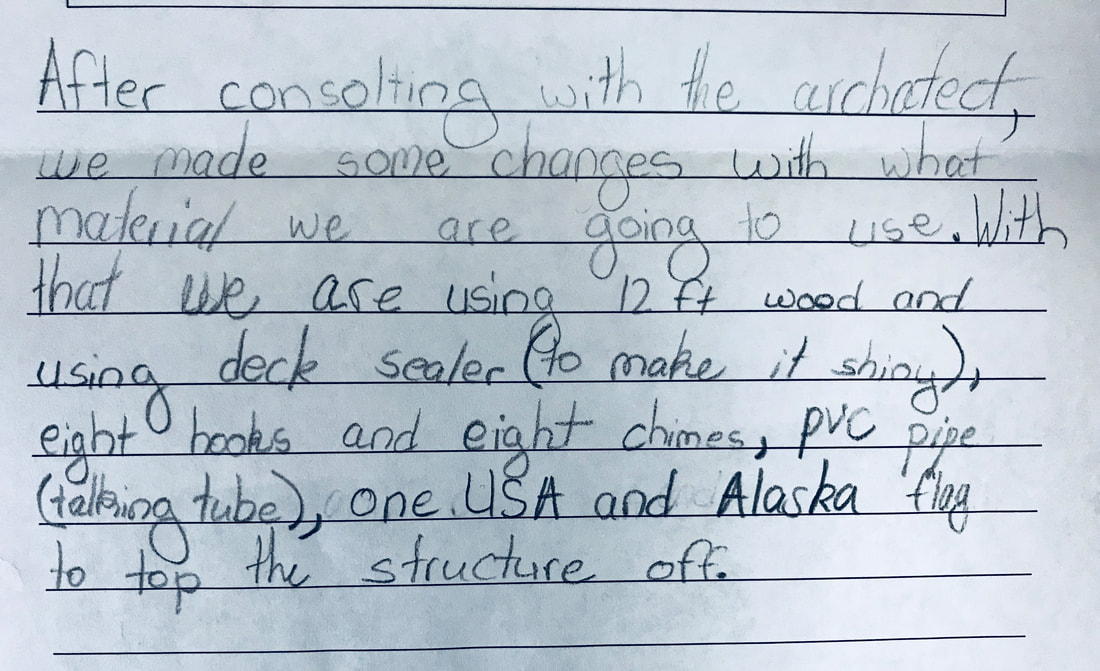 After consolting with the archatect,
we made some changes with what
material we are going to use. With
that we are using 12 ft wood and
using deck sealer (to make it shiny),
eight hooks and eight chimes, PVC pipe
(talking tube), one USA and Alaska flag
to top the structure off.